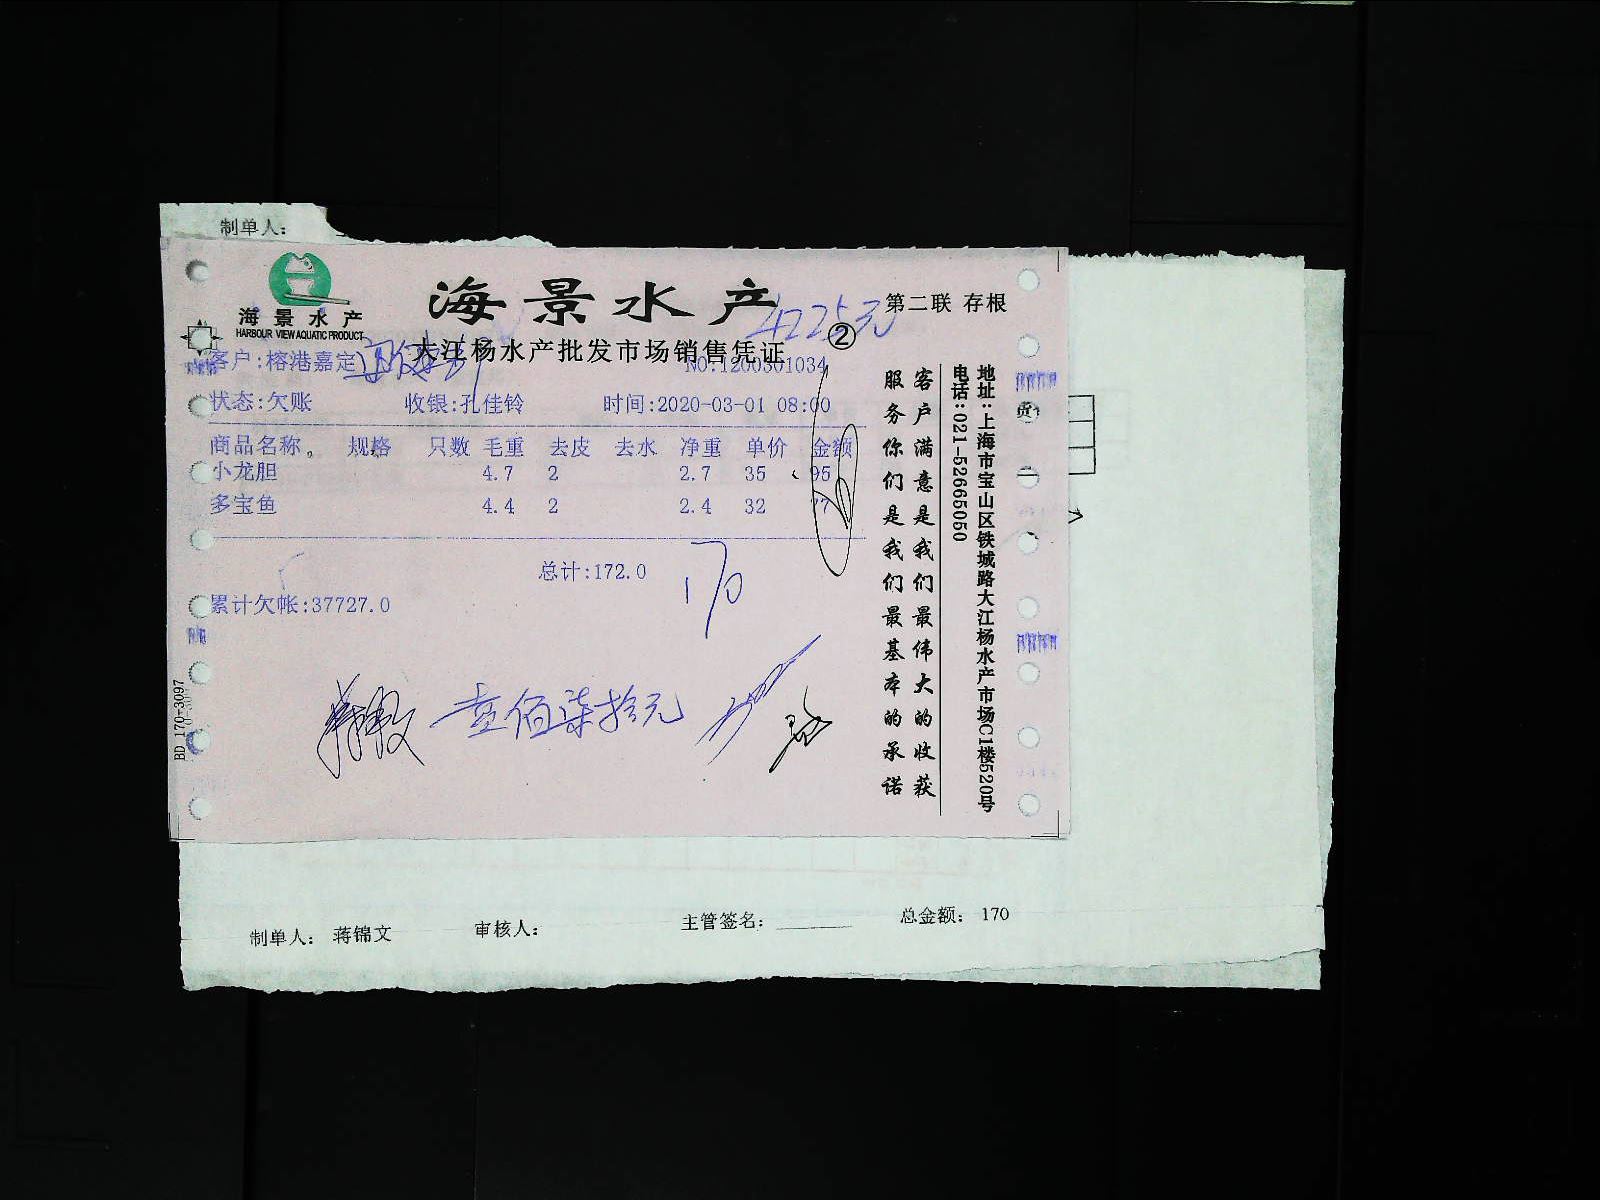 制单人：
海景水产
HARBOUR VIEW AQUATIC PRODUCT
海景水产
4225元
第二联 存根
②
大江杨水产批发市场销售凭证
客户:榕港嘉定
NO:1200301034
状态:欠账 收银:孔佳铃 时间:2020-03-01 08:00
商品名称 规格 只数 毛重 去皮 去水 净重 单价 金额
小龙胆 4.7 2 2.7 35 95
多宝鱼 4.4 2 2.4 32 77
总计:172.0
170
累计欠帐:37727.0
壹佰柒拾元
BD 170-3097
客户满意是我们最伟大的收获
服务你们是我们最基本的承诺
地址：上海市宝山区铁城路大江杨水产市场C1楼520号
电话：021-52665050
货
制单人： 蒋锦文 审核人： 主管签名： 总金额： 170